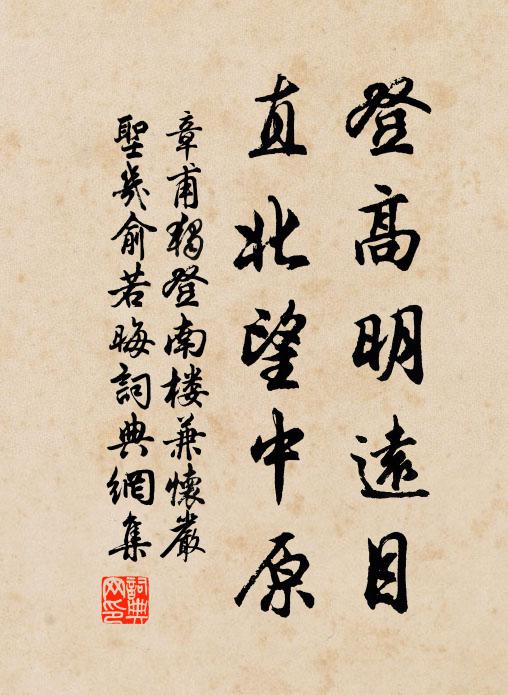 登高明遠目
直北望中原
章甫獨登南楼兼懷嚴
聖幾俞若晦詞典網集
詞典网印